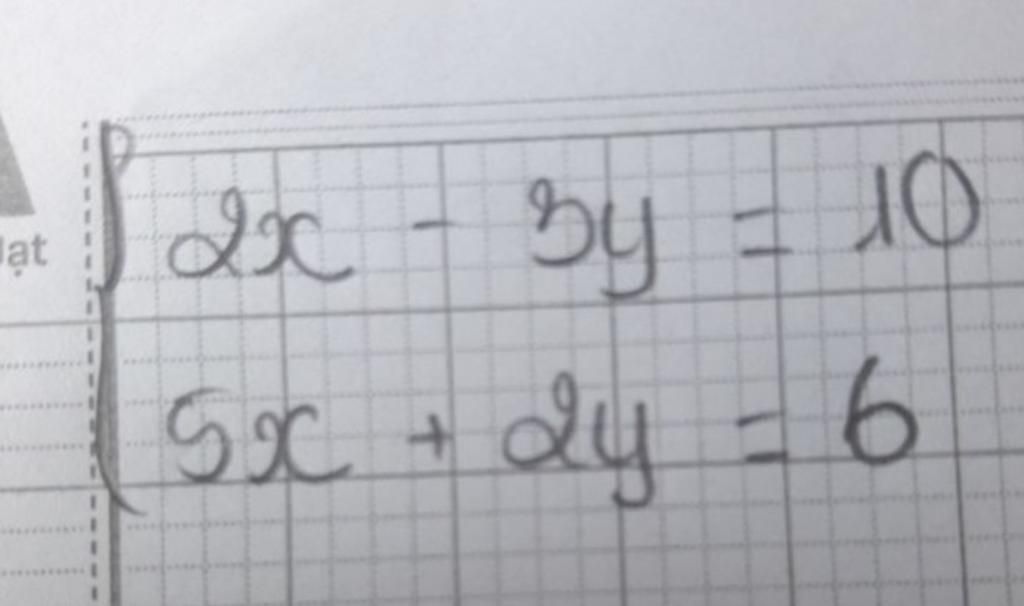 2x - 3y = 10
5x + 2y = 6